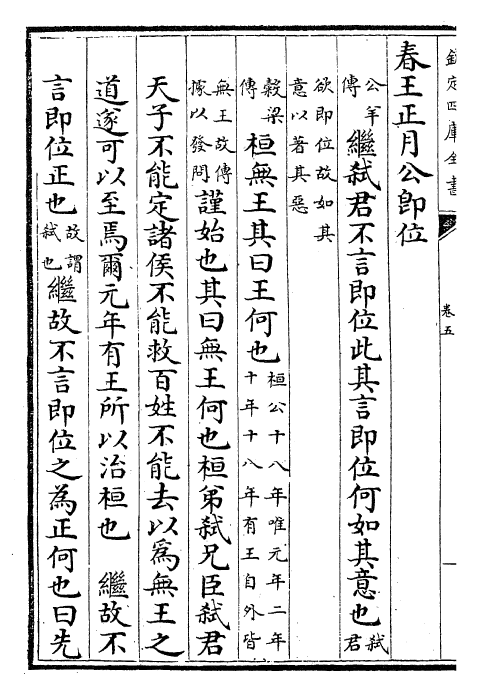 欽定四庫全書
卷五
一
春王正月公即位
公羊傳繼弑君不言即位此其言即位何如其意也弑君
欲即位故如其意以著其惡
穀梁傳桓無王其曰王何也桓公十八年唯元年二年十年十八年有王自外皆
無王故傳據以發問謹始也其曰無王何也桓弟弑兄臣弑君
天子不能定諸侯不能救百姓不能去以爲無王之
道遂可以至焉爾元年有王所以治桓也　繼故不
言即位正也故謂弑也繼故不言即位之為正何也曰先